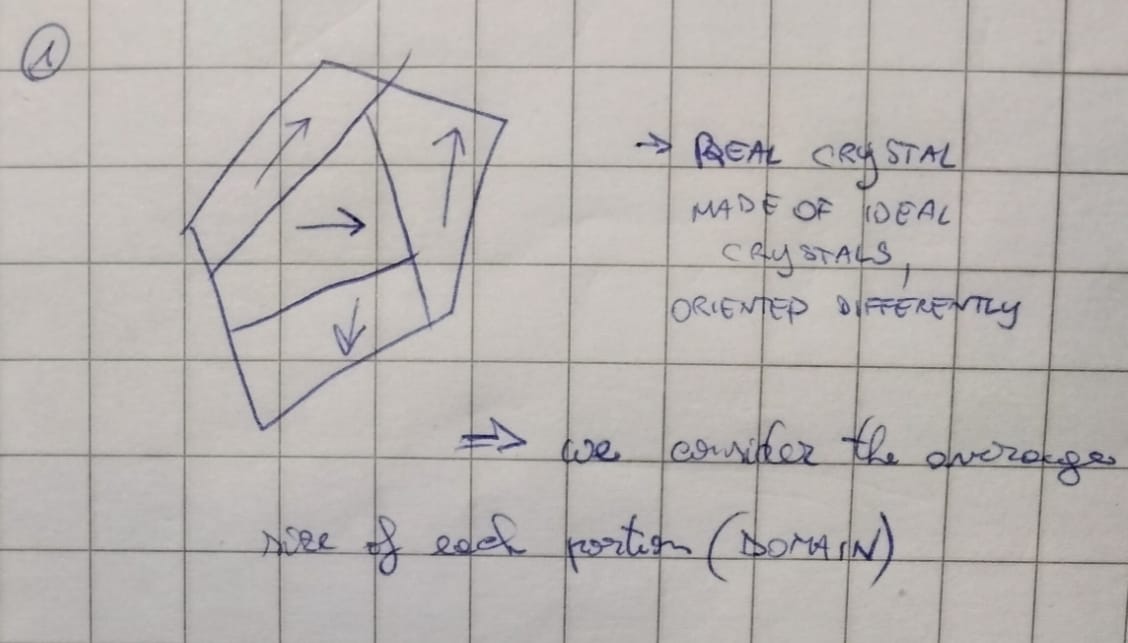 1
→ REAL CRYSTAL
MADE OF IDEAL
CRYSTALS,
ORIENTED DIFFERENTLY
⇒ we consider the average
size of each portion (DOMAIN)